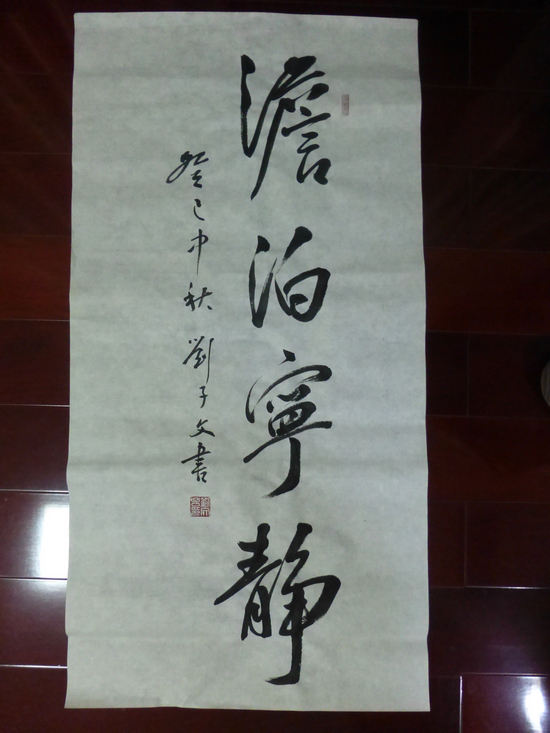 澹泊寧静
癸巳中秋劉子文書